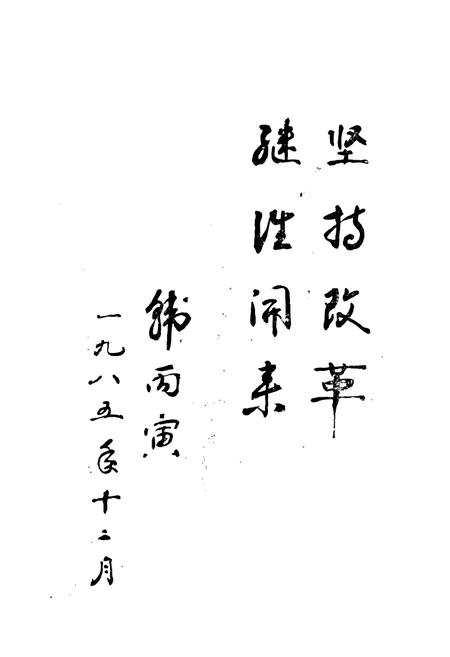 坚持改革
继往开来
韩丙寅
一九八五年十二月